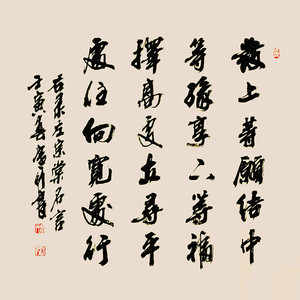 發上等願結中
等緣享下等福
擇高處立尋平
處住向寬處行
右录左宗棠名言
壬寅春書